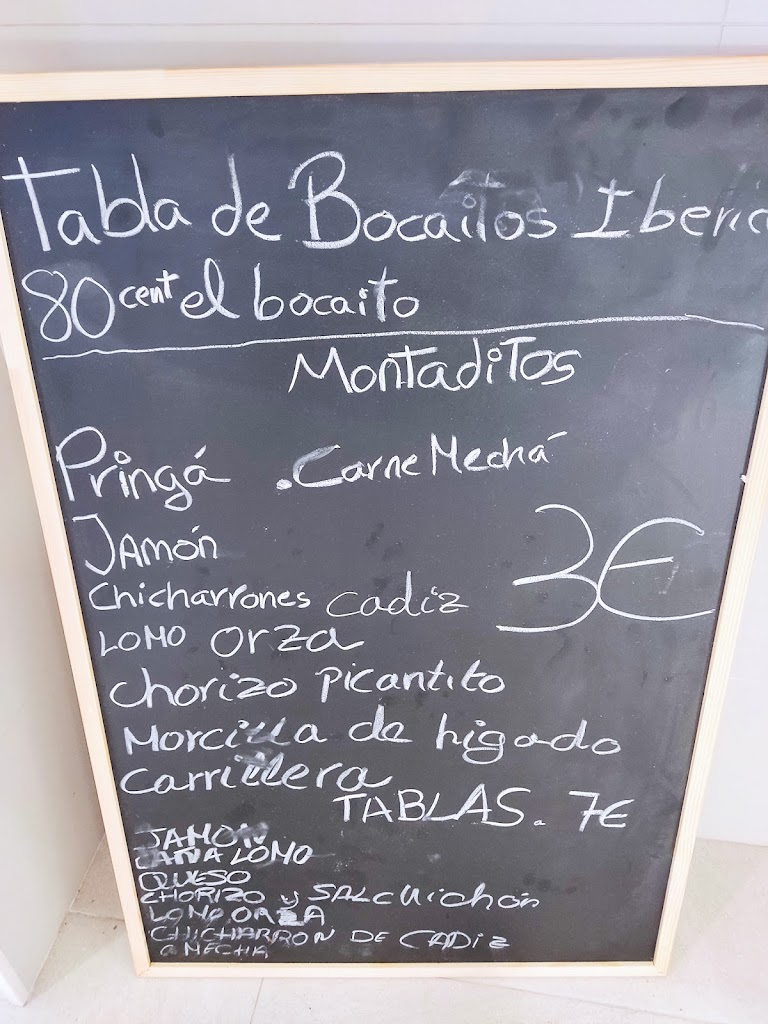 Tabla de Bocaitos Iberic
80 cent el bocaito
Montaditos
Pringá . Carne Mechá
JAMÓN
3€
Chicharrones cadiz
LOMO orza
Chorizo Picantito
Morcilla de higado
Carrillera
TABLAS. 7€
JAMON
CAÑA LOMO
QUESO
CHORIZO y SALCHichón
LOMO ORZA
CHICHARRON DE CADiz
C MECHA